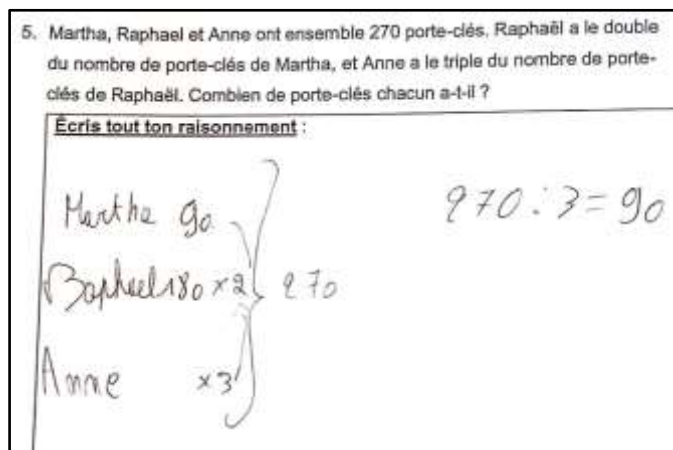 5. Martha, Raphael et Anne ont ensemble 270 porte-clés. Raphaël a le double
du nombre de porte-clés de Martha, et Anne a le triple du nombre de porte-
clés de Raphaël. Combien de porte-clés chacun a-t-il ?
Écris tout ton raisonnement :
Martha 90
Raphael 180 ×2
Anne ×3
270
270 : 3 = 90